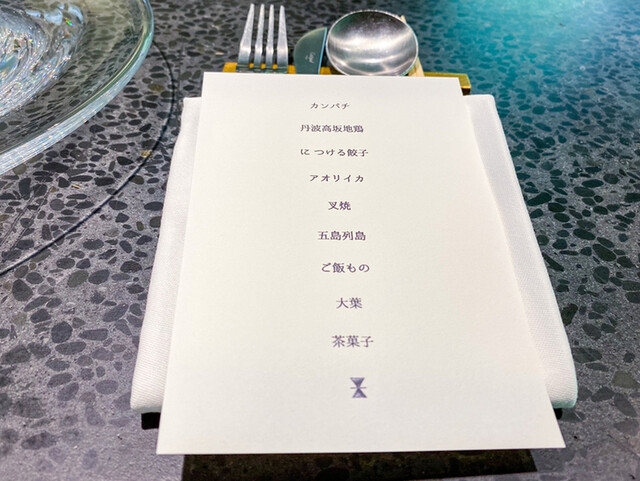 カンパチ
丹波高坂地鶏
に つける餃子
アオリイカ
叉焼
五島列島
ご飯もの
大葉
茶菓子